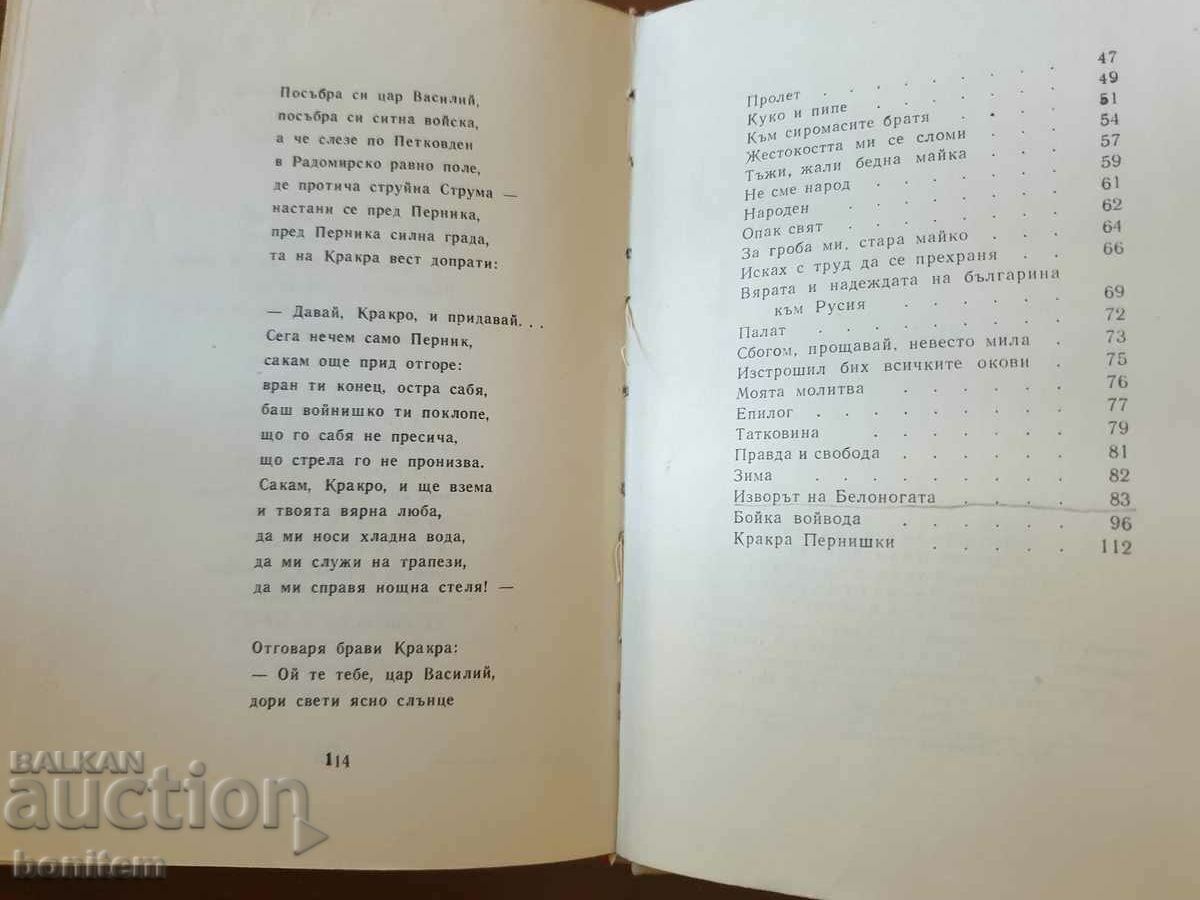 Посъбра си цар Василий,
посъбра си ситна войска,
а че слезе по Петковден
в Радомирско равно поле,
де протича струйна Струма —
настани се пред Перника,
пред Перника силна града,
та на Кракра вест допрати:
— Давай, Кракро, и придавай. . .
Сега нечем само Перник,
сакам още прид отгоре:
вран ти конец, остра сабя,
баш войнишко ти поклопе,
що го сабя не пресича,
що стрела го не пронизва.
Сакам, Кракро, и ще взема
и твоята вярна люба,
да ми носи хладна вода,
да ми служи на трапези,
да ми справя нощна стеля! —
Отговаря брави Кракра:
— Ой те тебе, цар Василий,
дори свети ясно слънце
114
Пролет . . . . . . . . 47
Куко и пипе . . . . . . . 49
Към сиромасите братя . . . . 51
Жестокостта ми се сломи . . . . 54
Тъжи, жали бедна майка . . . 57
Не сме народ . . . . . . . 59
Народен . . . . . . . . 61
Опак свят . . . . . . . 62
За гроба ми, стара майко . . . 64
Исках с труд да се прехраня . . 66
Вярата и надеждата на българина
към Русия . . . . . . 69
Палат . . . . . . . . 72
Сбогом, прощавай, невесто мила . 73
Изстрошил бих всичките окови . 75
Моята молитва . . . . . . 76
Епилог . . . . . . . . 77
Татковина . . . . . . . 79
Правда и свобода . . . . . . 81
Зима . . . . . . . . . 82
Изворът на Белоногата . . . . 83
Бойка войвода . . . . . . 96
Кракра Пернишки . . . . . 112
BALKAN
auction
bonitem